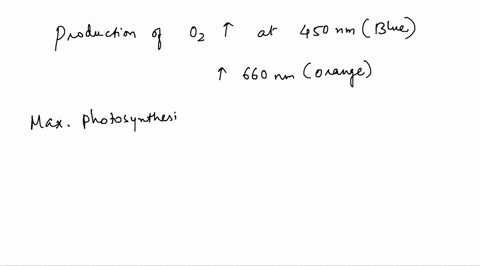 Production of O2 ↑ at 450 nm (Blue)
↑ 660 nm (Orange)
Max. Photosynthesi